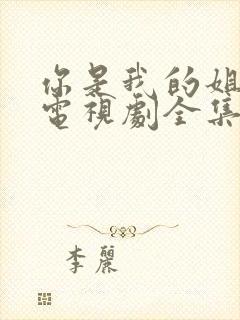 你是我的姐
電視劇全集
李麗